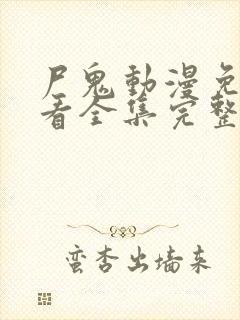 尸鬼動漫免
看全集完整
蛮杏出墙来